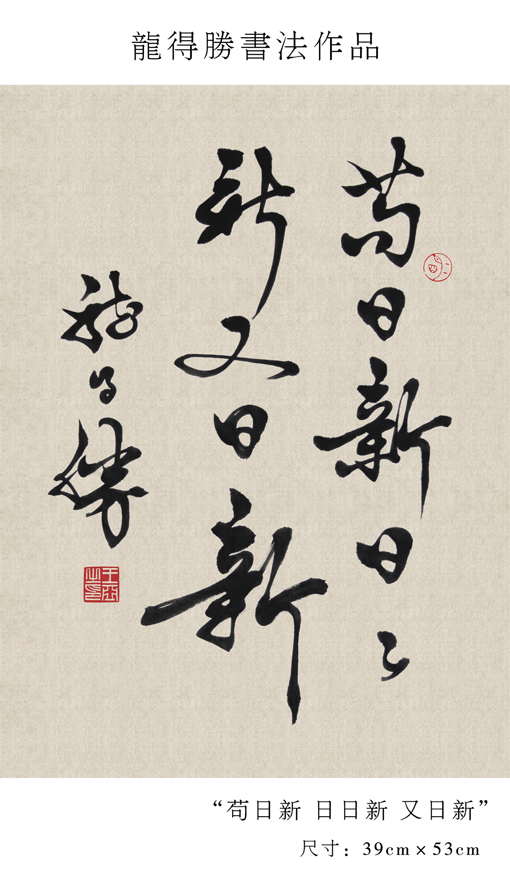 龍得勝書法作品
苟日新日〻
新又日新
龍得勝
“苟日新 日日新 又日新”
尺寸：39cm×53cm